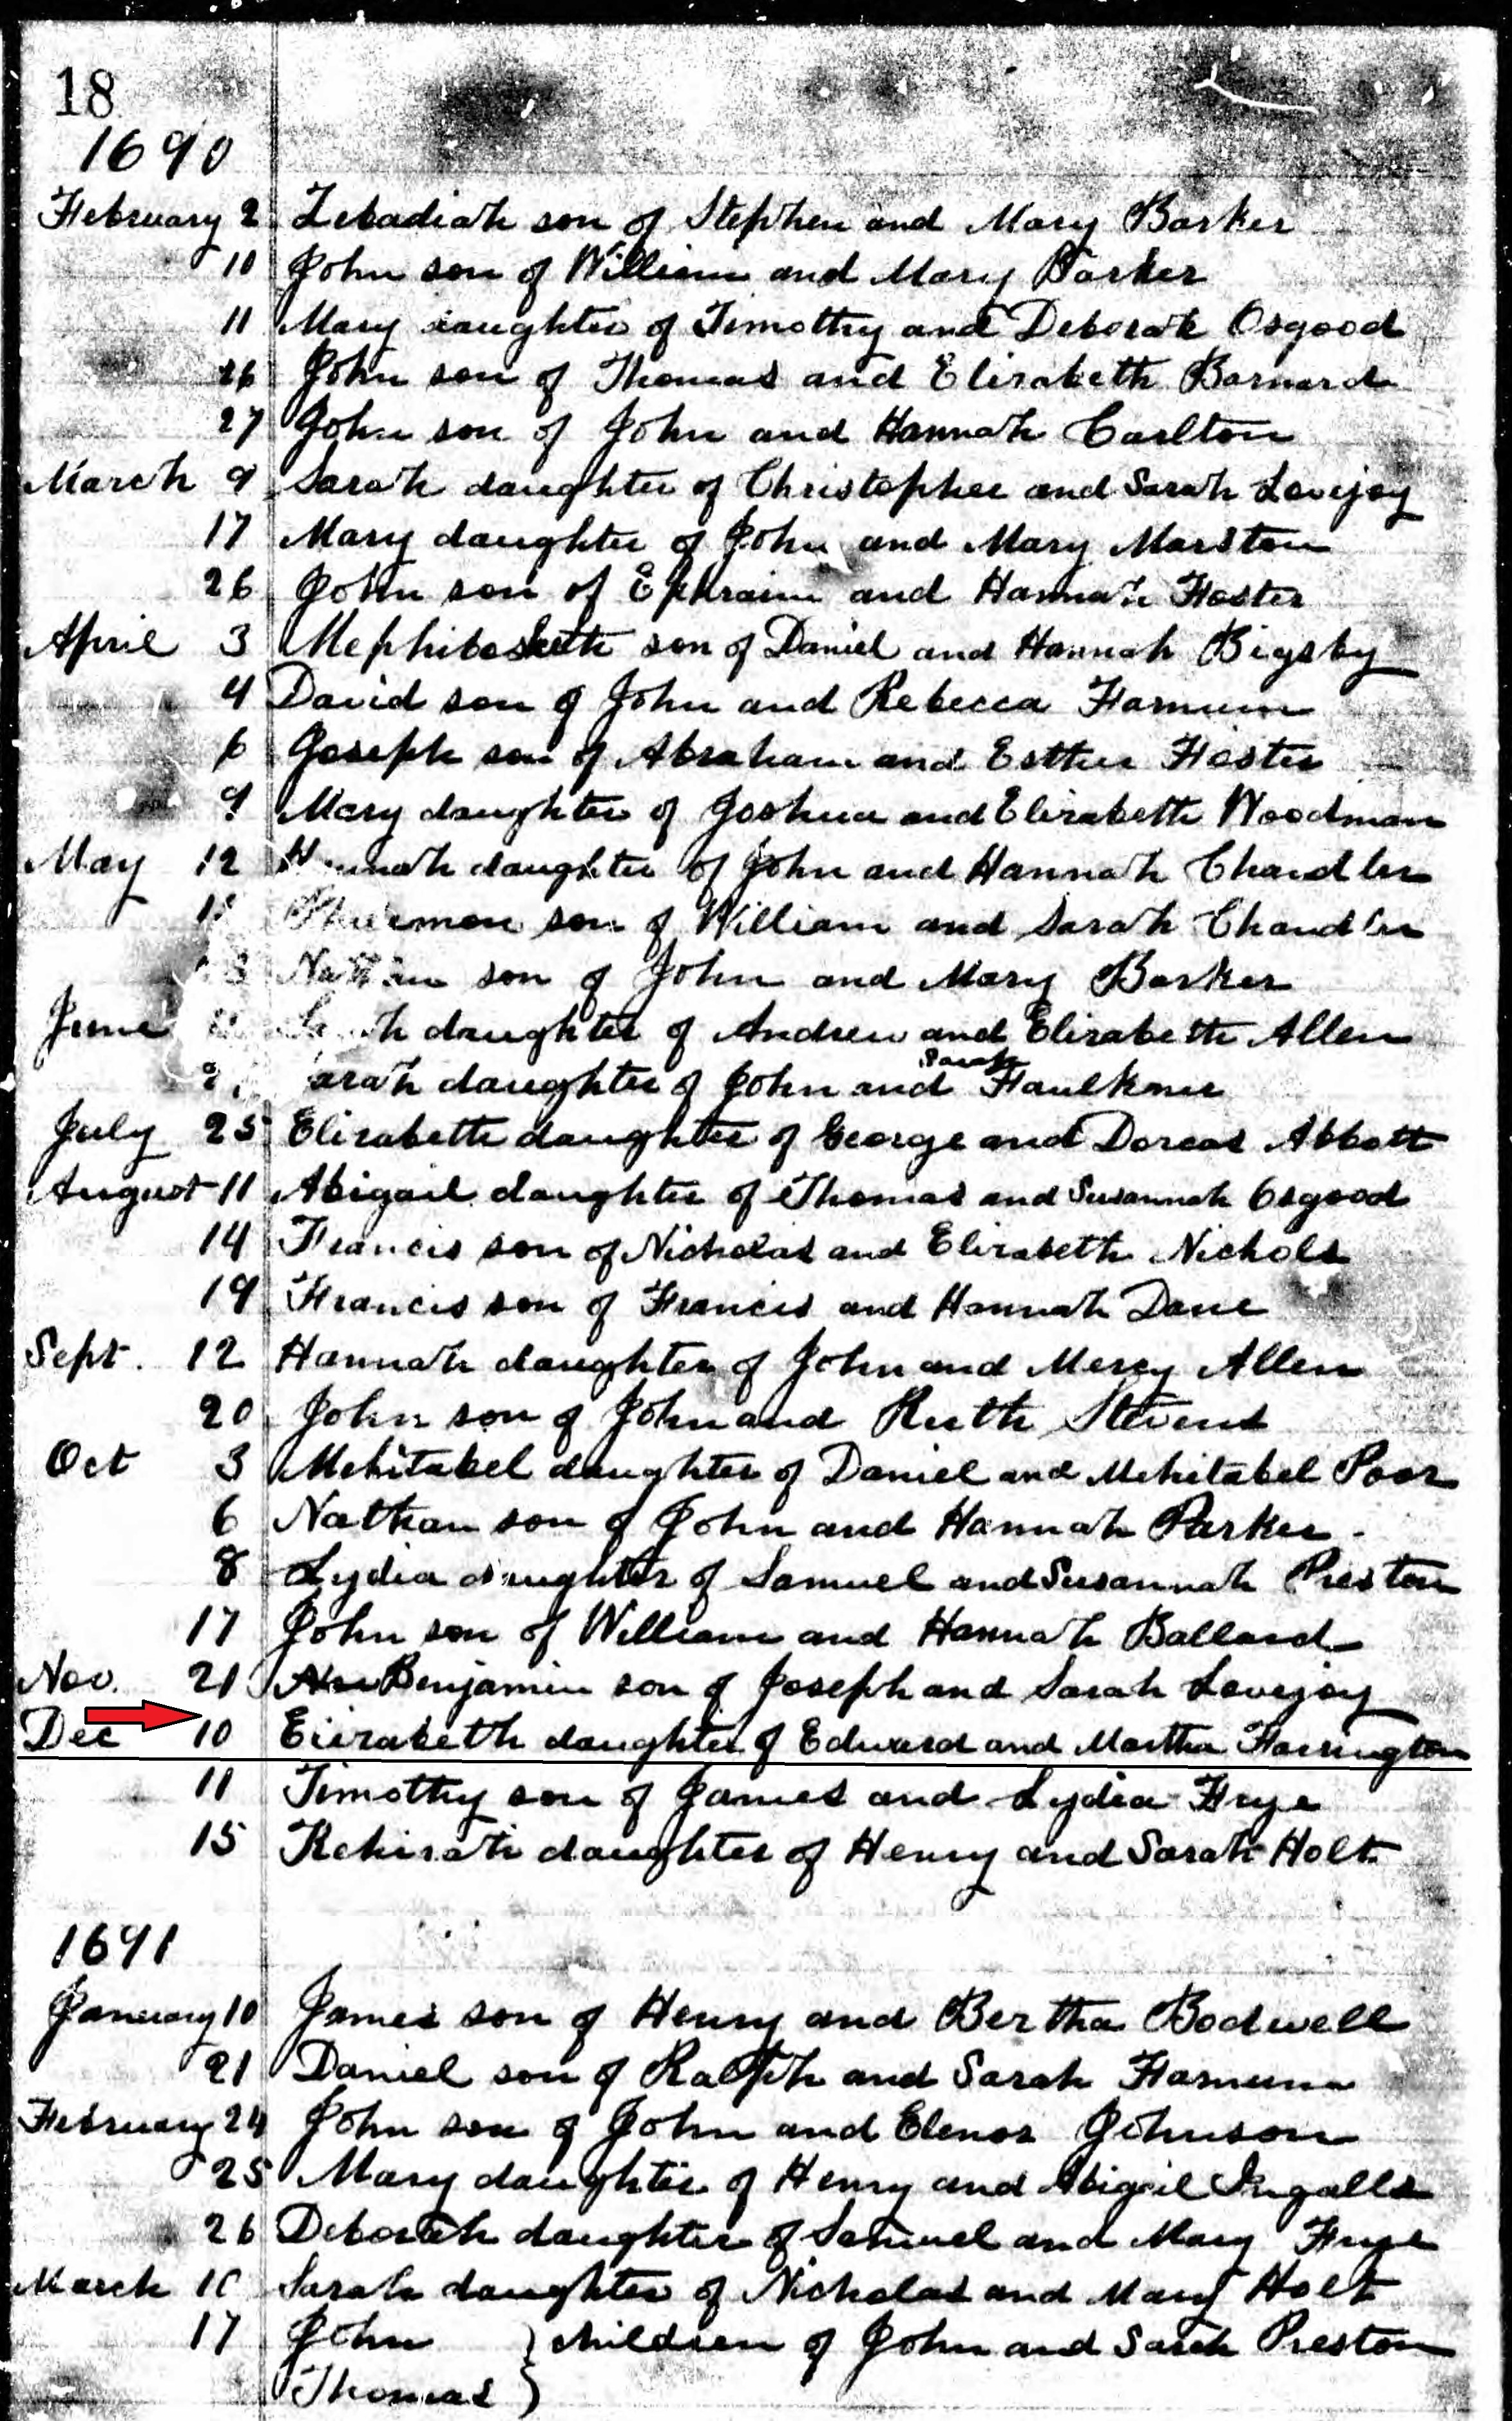 18
1690
February 2 Zebadiah son of Stephen and Mary Barker
10 John son of William and Mary Barker
11 Mary daughter of Timothy and Deborah Osgood
26 John son of Thomas and Elizabeth Barnard
27 John son of John and Hannah Carlton
March 9 Sarah daughter of Christopher and Sarah Lovejoy
17 Mary daughter of John and Mary Marston
26 John son of Ephraim and Hannah Foster
April 3 Mephibosheth son of Daniel and Hannah Bigsby
4 David son of John and Rebecca Farnum
6 Joseph son of Abraham and Esther Foster
9 Mary daughter of Joshua and Elizabeth Woodman
May 12 Hannah daughter of John and Hannah Chandler
son of William and Sarah Chandler
Nathan son of John and Mary Barker
June daughter of Andrew and Elizabeth Allen
Sarah
arah daughter of John and Faulkner
July 25 Elizabeth daughter of George and Dorcas Abbott
August 11 Abigail daughter of Thomas and Susannah Osgood
14 Francis son of Nicholas and Elizabeth Nichols
19 Francis son of Francis and Hannah Dane
Sept. 12 Hannah daughter of John and Mercy Allen
20 John son of John and Ruth Stevens
Oct 3 Mehitabel daughter of Daniel and Mehitabel Poor
6 Nathan son of John and Hannah Parker
8 Lydia daughter of Samuel and Susannah Preston
17 John son of William and Hannah Ballard
Nov. 21 Benjamin son of Joseph and Sarah Lovejoy
Dec 10 Elizabeth daughter of Edward and Martha Farrington
11 Timothy son of James and Lydia Frye
15 Kehizah daughter of Henry and Sarah Holt
1691
January 10 James son of Henry and Bertha Bodwell
21 Daniel son of Ralph and Sarah Farnum
February 24 John son of John and Elenor Johnson
25 Mary daughter of Henry and Abigail Ingalls
26 Deborah daughter of Samuel and Mary Frye
March 10 Sarah daughter of Nicholas and Mary Holt
17 John } children of John and Sarah Preston
Thomas }